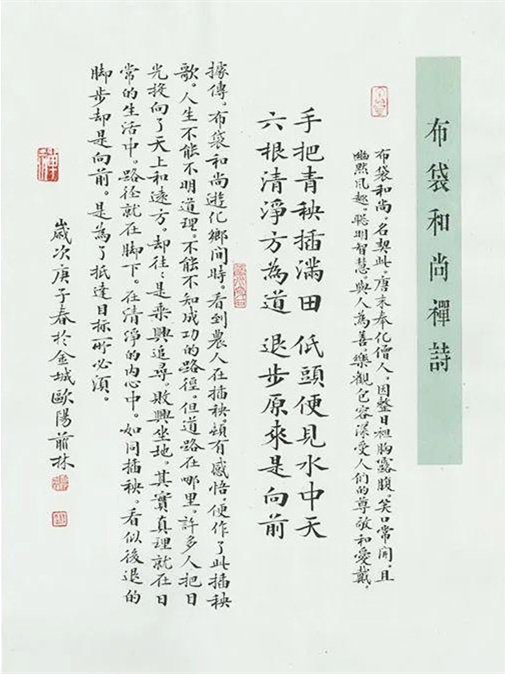 布袋和尚禪詩
布袋和尚,名契此。唐末奉化僧人,因整日袒胸露腹。笑口常開,且
幽默風趣。聰明智慧。與人為善。樂觀包容深受人们的尊敬和愛戴。
手把青秧插滿田 低頭便見水中天
六根清淨方為道 退步原來是向前
據傳。布袋和尚遊化鄉間時。看到農人在插秧頗有感悟。便作了此插秧
歌。人生不能不明道理。不能不知成功的路徑。但道路在哪里。許多人把目
光投向了天上和遠方。却往:是乘興追尋。敗興坐地。其實真理就在日
常的生活中。路徑就在脚下。在清淨的内心中。如同插秧。看似後退的
脚步却是向前。是為了抵達目標所必須。
歲次庚子春於金城歐陽前林